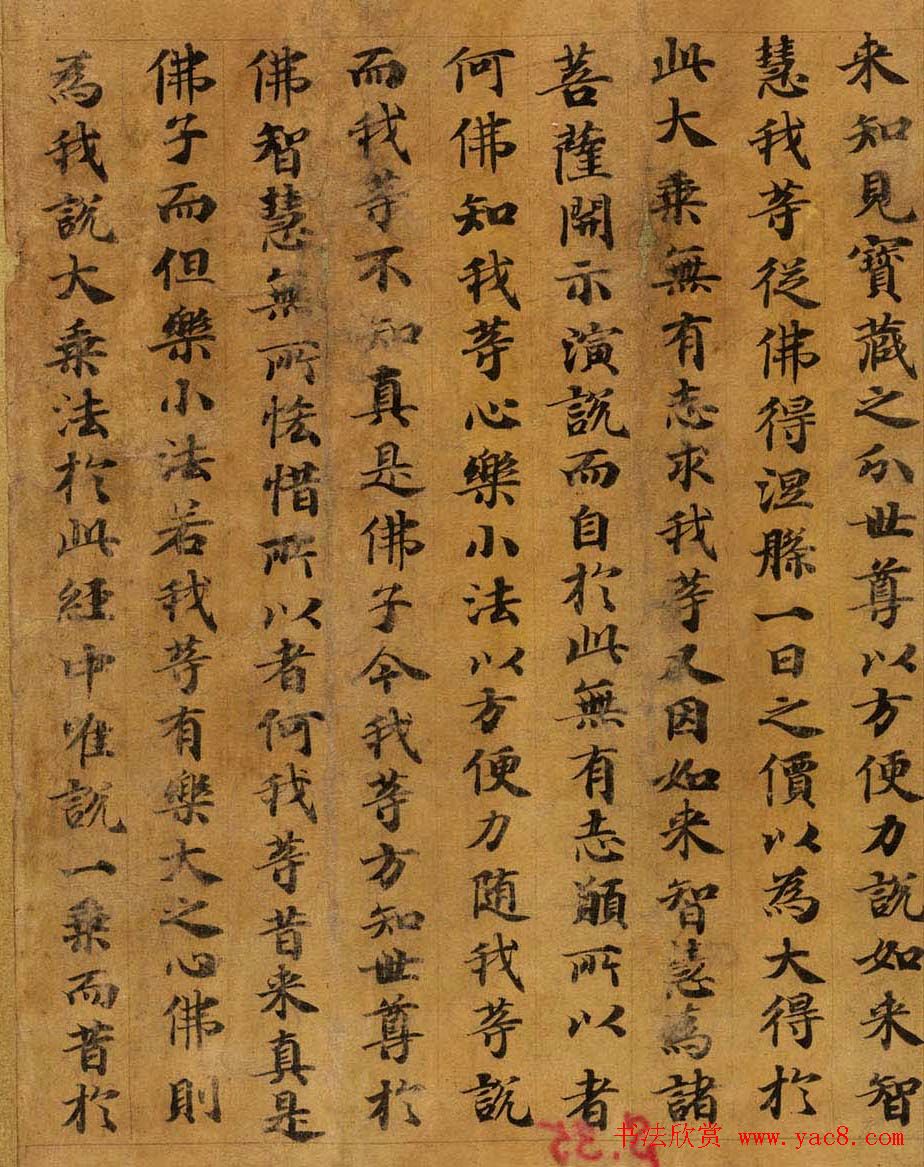 来知見寶藏之分世尊以方便力說如来智
慧我等從佛得涅槃一日之價以為大得於
此大乘無有志求我等又因如来智慧為諸
菩薩開示演說而自於此無有志願所以者
何佛知我等心樂小法以方便力随我等說
而我等不知真是佛子今我等方知世尊於
佛智慧無所悋惜所以者何我等昔来真是
佛子而但樂小法若我等有樂大之心佛則
為我說大乘法於此經中唯說一乘而昔於
书法欣赏 www.yac8.com